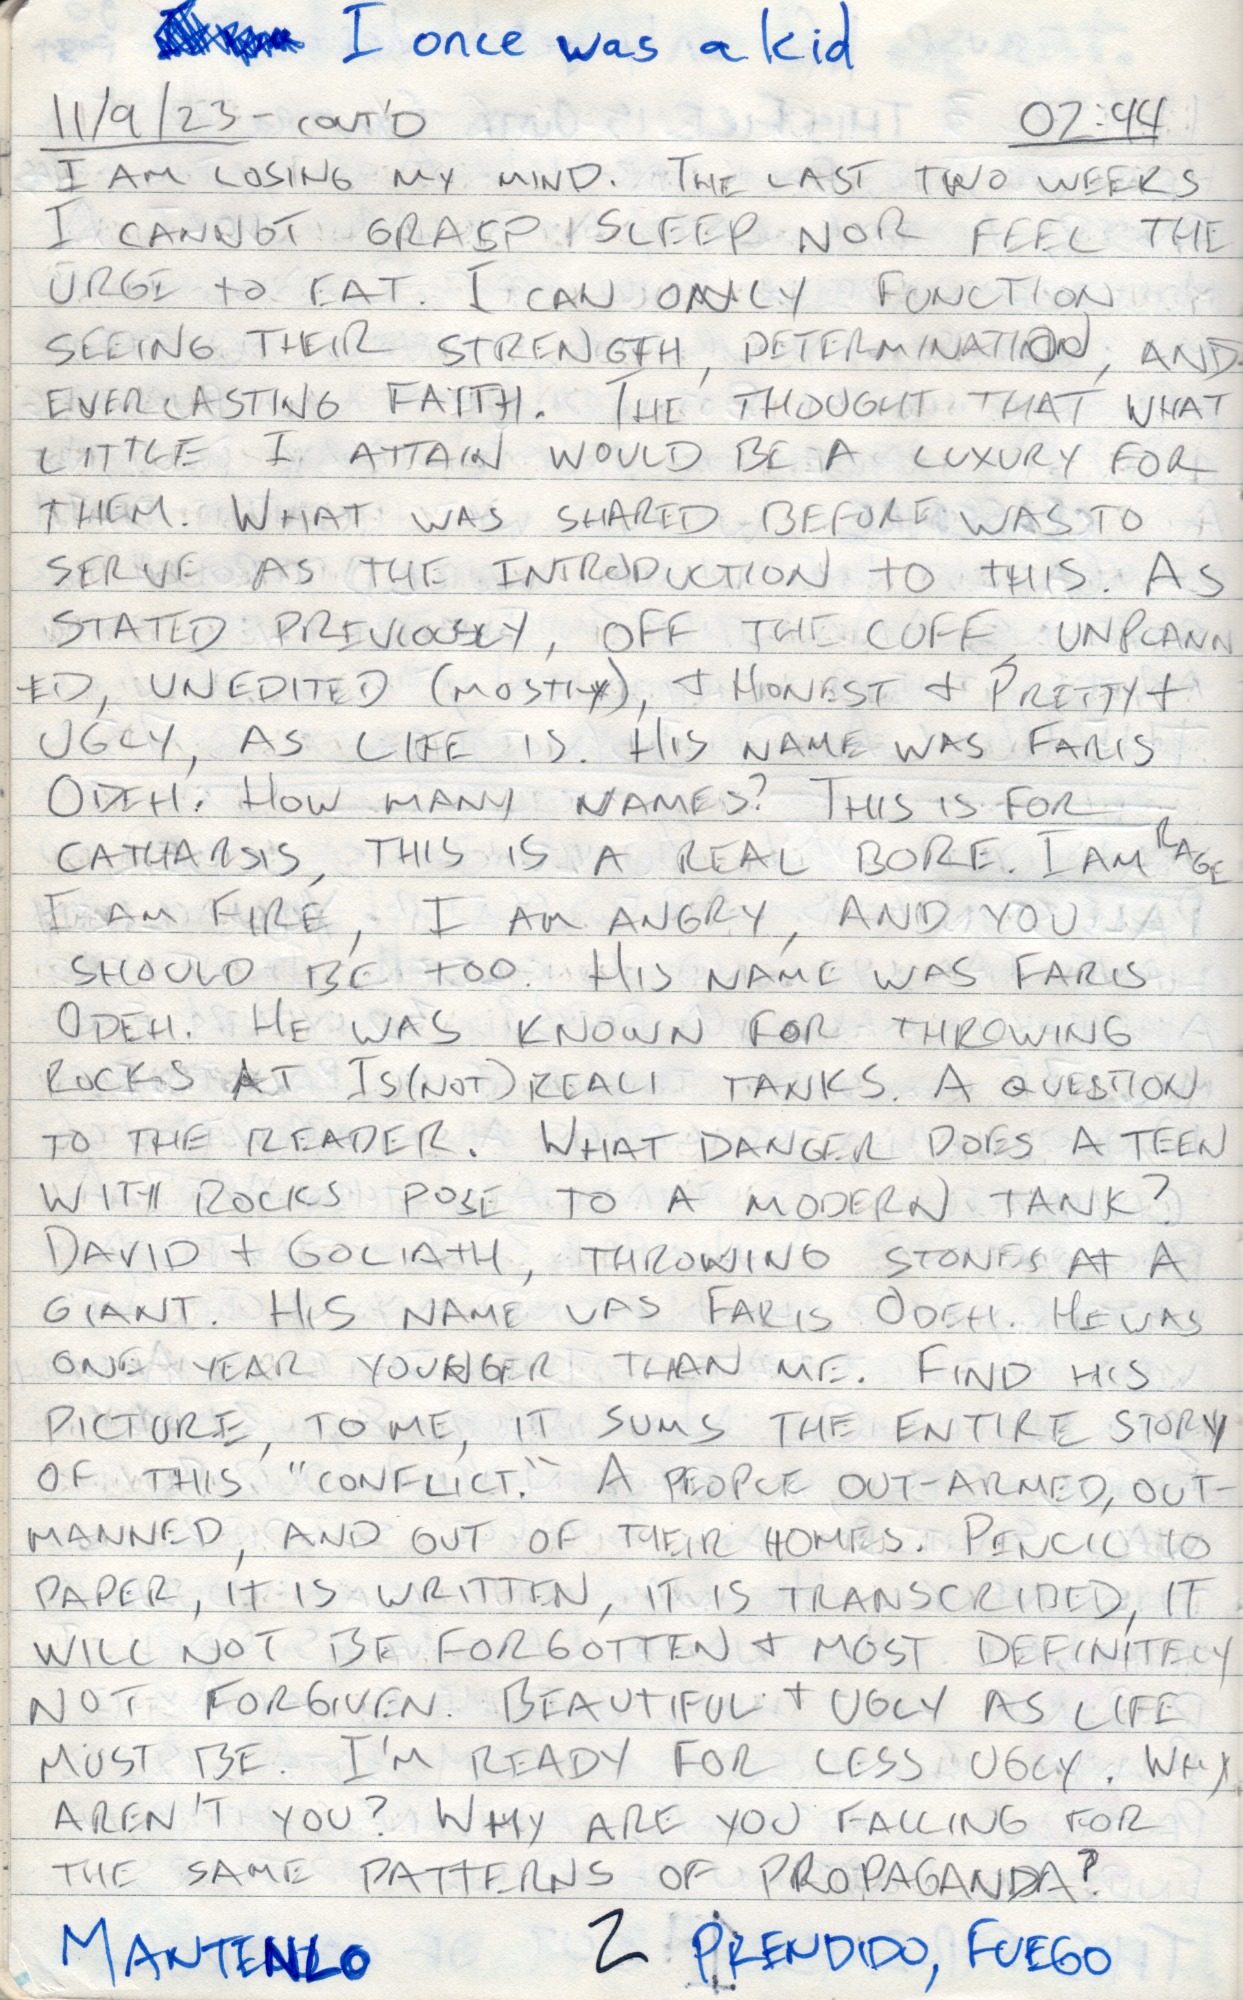 I once was a kid
11/9/23 - CONT'D 02:44
I AM LOSING MY MIND. THE LAST TWO WEEKS
I CANNOT GRASP SLEEP NOR FEEL THE
URGE TO EAT. I CAN ONLY FUNCTION
SEEING THEIR STRENGTH, DETERMINATION, AND
EVERLASTING FAITH. THE THOUGHT THAT WHAT
LITTLE I ATTAIN WOULD BE A LUXURY FOR
THEM. WHAT WAS SHARED BEFORE WAS TO
SERVE AS THE INTRODUCTION TO THIS. AS
STATED PREVIOUSLY, OFF THE CUFF, UNPLANN
-ED, UNEDITED (MOSTLY), + HONEST + PRETTY +
UGLY, AS LIFE IS. HIS NAME WAS FARIS
ODEH. HOW MANY NAMES? THIS IS FOR
CATHARSIS, THIS IS A REAL BORE. I AM RAGE
I AM FIRE, I AM ANGRY, AND YOU
SHOULD BE TOO. HIS NAME WAS FARIS
ODEH. HE WAS KNOWN FOR THROWING
ROCKS AT IS(NOT)REALI TANKS. A QUESTION
TO THE READER. WHAT DANGER DOES A TEEN
WITH ROCKS POSE TO A MODERN TANK?
DAVID + GOLIATH, THROWING STONES AT A
GIANT. HIS NAME WAS FARIS ODEH. HE WAS
ONE YEAR YOUNGER THAN ME. FIND HIS
PICTURE, TO ME, IT SUMS THE ENTIRE STORY
OF THIS "CONFLICT." A PEOPLE OUT-ARMED, OUT-
MANNED, AND OUT OF THEIR HOMES. PENCIL TO
PAPER, IT IS WRITTEN, IT IS TRANSCRIBED, IT
WILL NOT BE FORGOTTEN + MOST DEFINITELY
NOT FORGIVEN. BEAUTIFUL + UGLY AS LIFE
MUST BE. I'M READY FOR LESS UGLY. WHY
AREN'T YOU? WHY ARE YOU FALLING FOR
THE SAME PATTERNS OF PROPAGANDA?
MANTENLO 2 PRENDIDO, FUEGO